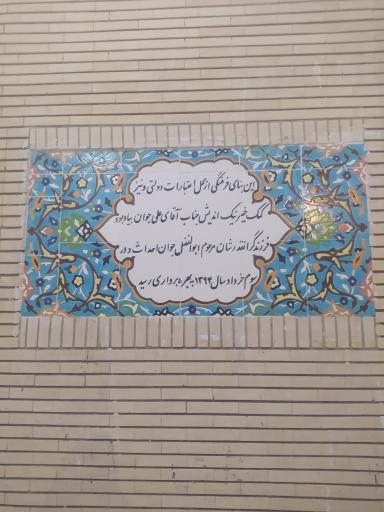 این بنای فرهنگی از محل اعتبارات دولتی و نیز
کمک خیر نیک اندیش جناب آقای علی جوان بیاد بود
فرزند گرانقدرشان مرحوم ابوالفضل جوان احداث و در
سوم خرداد سال ۱۳۹۴ به بهره برداری رسید